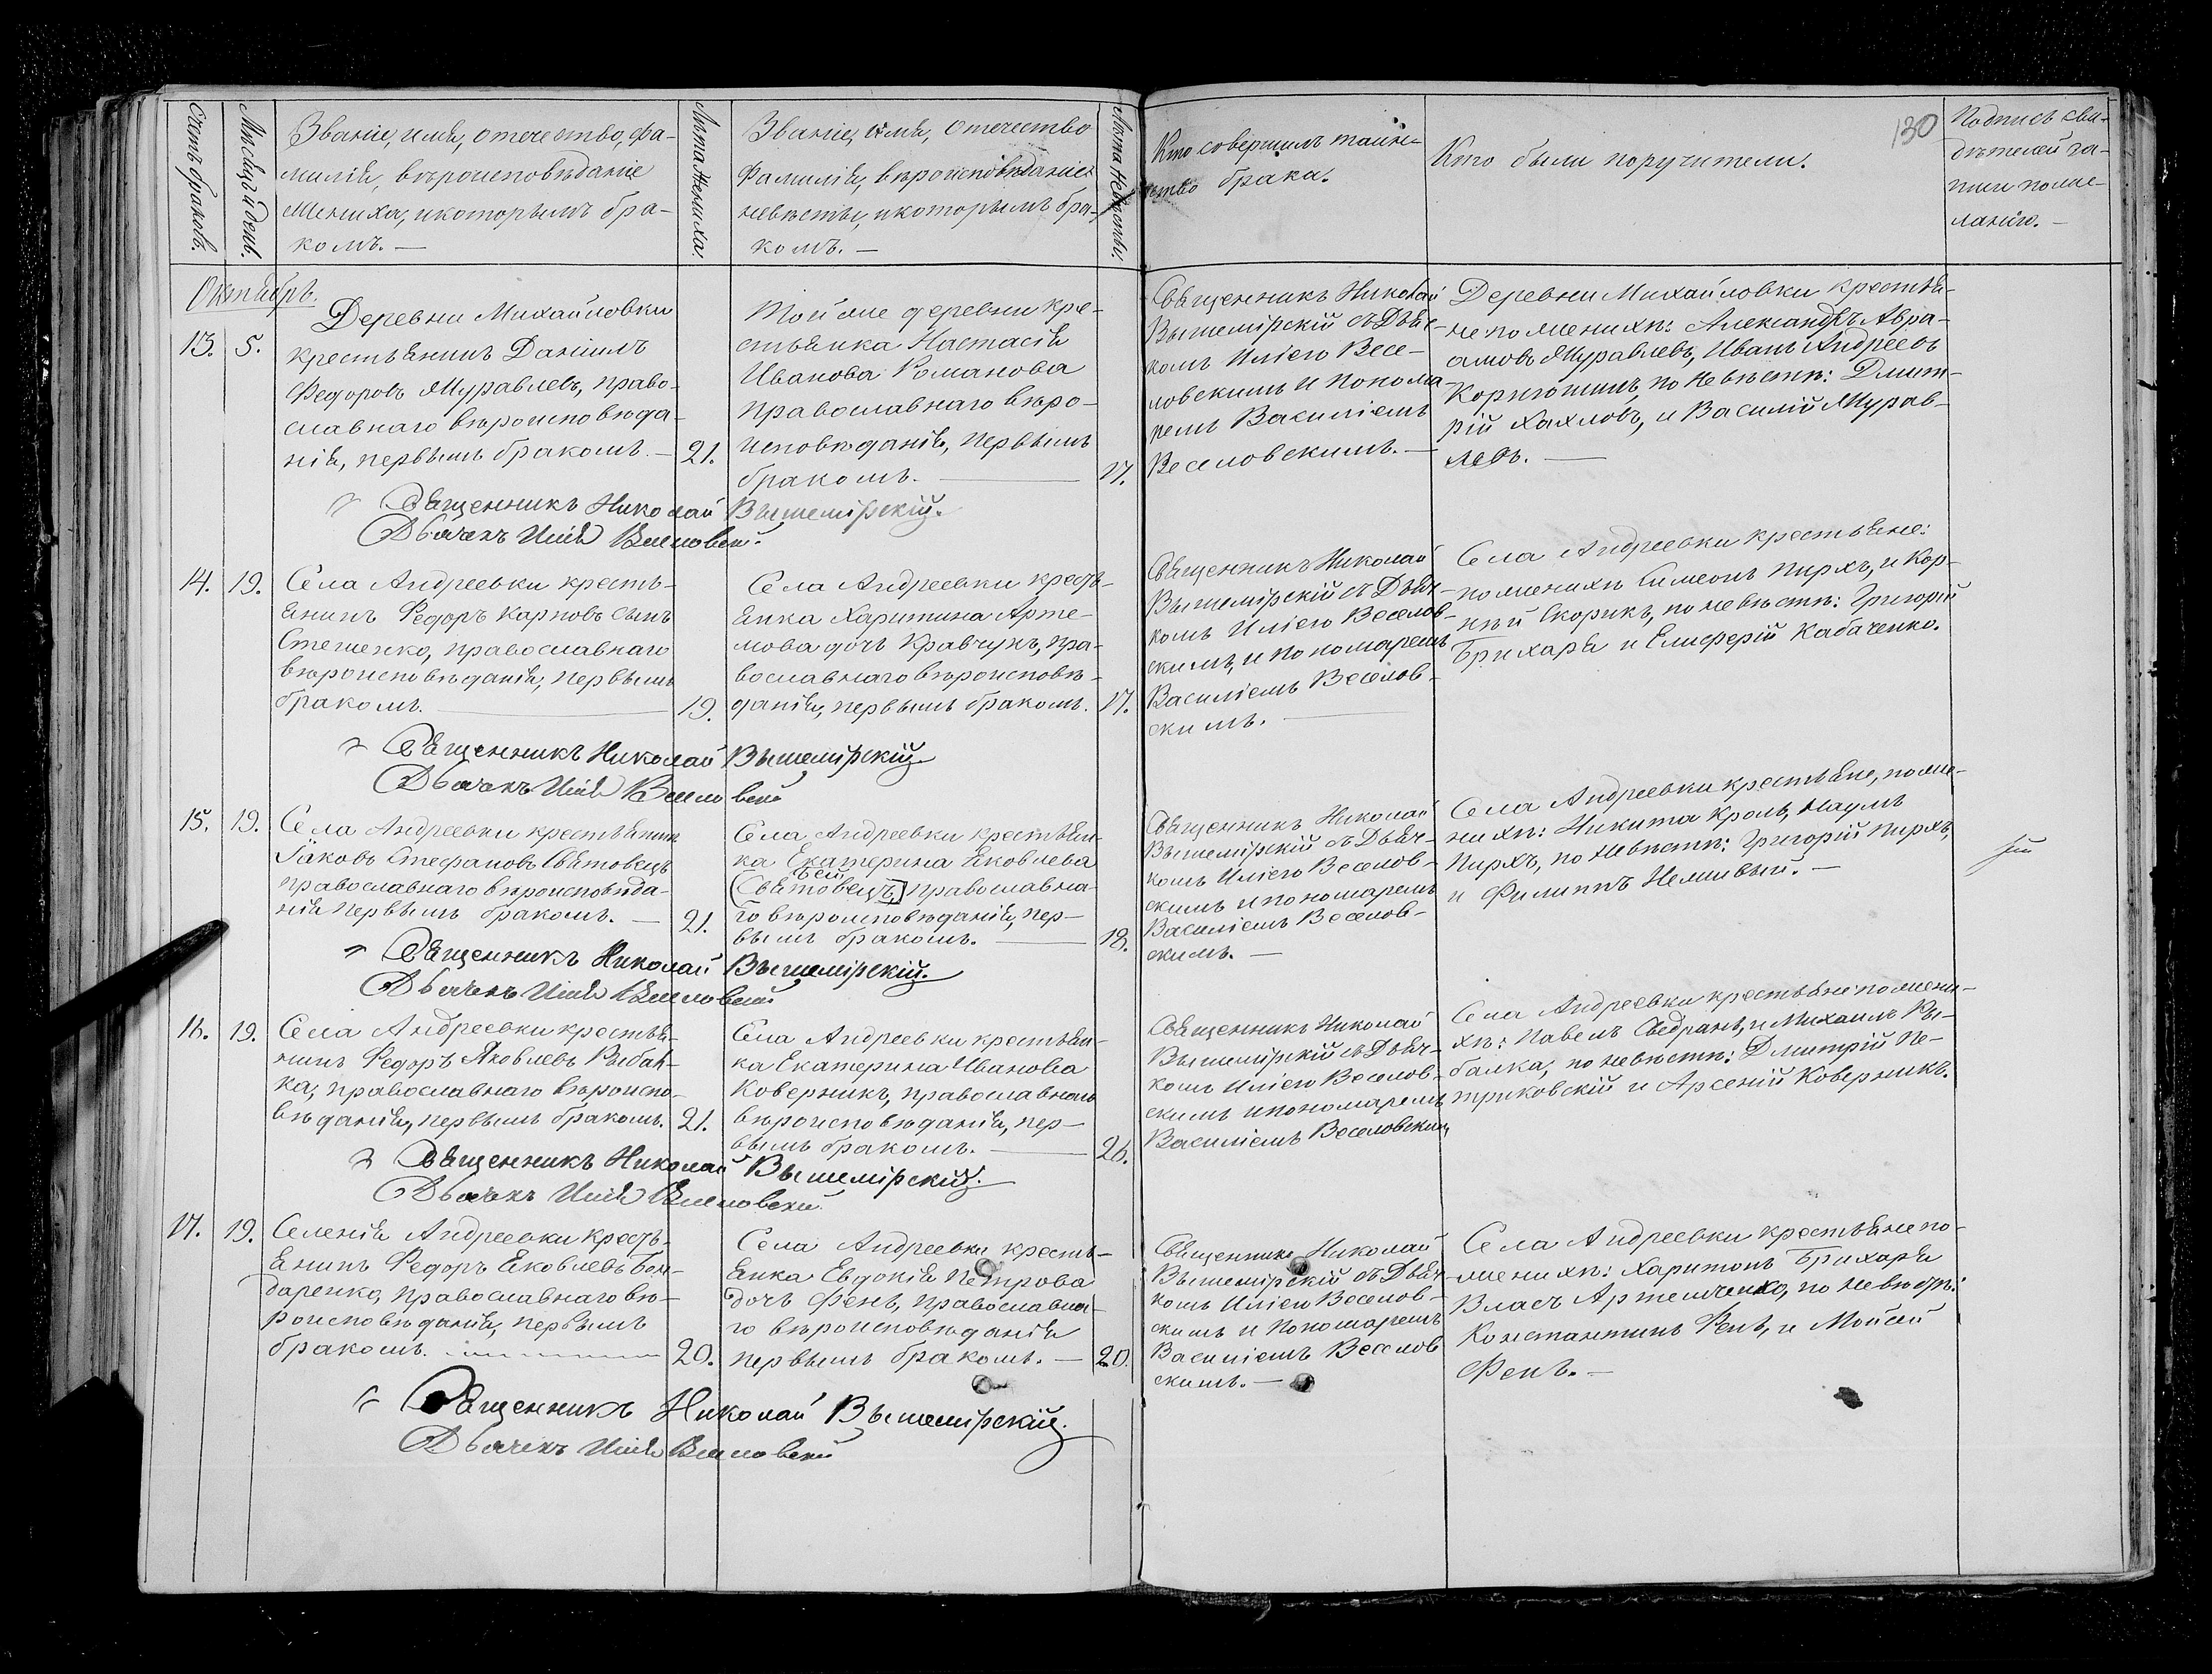 Счетъ браковъ.
Мѣсяцъ и день.
Званіе, имя, отечество, фа-
милія, вѣроисповѣданіе
жениха, и которымъ бра-
комъ. —
Лѣта жениха.
Званіе, имя, отечество
фамилія, вѣроисповѣданіе
невѣсты, и которымъ бра-
комъ. —
Лѣта невѣсты.
Кто совершилъ таин-
ство брака.
Кто были поручители.
130
Подпись сви-
дѣтелей за-
писи по же-
ланію. —
Октябрь.
13. 5.
Деревни Михайловки
крестьянинъ Даніилъ
Федоровъ Муравлевъ, право-
славнаго вѣроисповѣда-
нія, первымъ бракомъ. —
21.
Той же деревни кре-
стьянка Настасія
Иванова Романова
православнаго вѣро-
исповѣданія, первымъ
бракомъ. —
17.
Священникъ Николай
Вышемірскій съ Дьяч-
комъ Иліею Весе-
ловскимъ и понома-
ремъ Василіемъ
Веселовскимъ. —
Деревни Михайловки крестья-
не по женихѣ: Александръ Авра-
амовъ Муравлевъ, Иванъ Андреевъ
Корнюшинъ, по невѣстѣ: Дмит-
рій Хахловъ, и Василій Мурав-
левъ. —
Священникъ Николай Вышемірскій.
Дьячекъ Илія Веселовскій.
14. 19.
Села Андреевки кресть-
янинъ Федоръ Карповъ сынъ
Стешенко, православнаго
вѣроисповѣданія, первымъ
бракомъ. —
19.
Села Андреевки кресть-
янка Харитина Арте-
мова дочь Кравчукъ, пра-
вославнаго вѣроисповѣ-
данія, первымъ бракомъ.
17.
Священникъ Николай
Вышемірскій съ Дьяч-
комъ Иліею Веселов-
скимъ, и пономаремъ
Василіемъ Веселов-
скимъ. —
Села Андреевки крестьяне:
по женихѣ Симеонъ Пирхъ, и Кор-
нѣй Скорикъ, по невѣстѣ: Григорій
Брихаря и Елисферій Кабаченко.
Священникъ Николай Вышемірскій
Дьячекъ Илія Веселовскій
15. 19.
Села Андреевки крестьянинъ
Іаковъ Стефановъ Святовецъ
православнаго вѣроисповѣда-
нія первымъ бракомъ. —
21.
Села Андреевки крестьян-
ка Екатерина Яковлева
Святовецъ, православна-
го вѣроисповѣданія, пер-
вымъ бракомъ. —
18.
Священникъ Николай
Вышемірскій съ Дьяч-
комъ Иліею Веселов-
скимъ и пономаремъ
Василіемъ Веселов-
скимъ. —
Села Андреевки крестьяне, по же-
нихѣ: Никита Кроль, Наумъ
Пирхъ, по невѣстѣ: Григорій Пирхъ,
и Филиппъ Немивый. —
Священникъ Николай Вышемірскій.
Дьячекъ Илія Веселовскій
16. 19.
Села Андреевки крестья-
нинъ Федоръ Яковлевъ Рыбал-
ка, православнаго вѣроиспо-
вѣданія, первымъ бракомъ.
21.
Села Андреевки крестьян-
ка Екатерина Иванова
Коверникъ, православнаго
вѣроисповѣданія, пер-
вымъ бракомъ. —
26.
Священникъ Николай
Вышемірскій съ Дьяч-
комъ Иліею Веселов-
скимъ и пономаремъ
Василіемъ Веселовскимъ
Села Андреевки крестьяне по жени-
хѣ: Павелъ Свѣдранъ, и Михаилъ Ры-
балка, по невѣстѣ: Дмитрій Пе-
триковскій и Арсеній Коверникъ.
Священникъ Николай Вышемірскій.
Дьячекъ Илія Веселовскій.
17. 19.
Селенія Андреевки кресть-
янинъ Федоръ Яковлевъ Бон-
даренко, православнаго вѣ-
роисповѣданія, первымъ
бракомъ. —
20.
Села Андреевки кресть-
янка Евдокія Петрова
дочь Фень, православна-
го вѣроисповѣданія
первымъ бракомъ. —
20.
Священникъ Николай
Вышемірскій съ Дьяч-
комъ Иліею Веселов-
скимъ и пономаремъ
Василіемъ Веселов
скимъ. —
Села Андреевки крестьяне по-
женихѣ: Харитонъ Брихаря
Власъ Артемченко, по невѣстѣ:
Константинъ Фень, и Мойсей
Фень. —
Священникъ Николай Вышемірскій.
Дьячекъ Илія Веселовскій